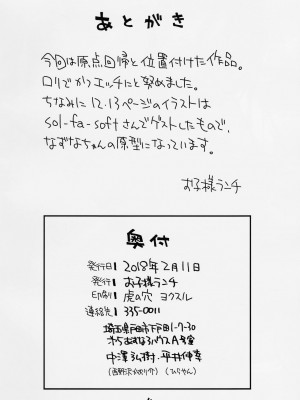 あとがき
今回は原点回帰と位置付けた作品。
ロリでかつエッチにと努めました。
ちなみに12.13ページのイラストは
sol-fa-softさんでゲストしたもので、
なずなちゃんの原型になっています。
お子様ランチ
奥付
発行日 2018年2月11日
発行 お子様ランチ
印刷 虎の穴 ヨクスル
連絡先 335-0011
埼玉県戸田市下戸田1-7-30
A号室
中澤 平井伸幸
(ひらやん)